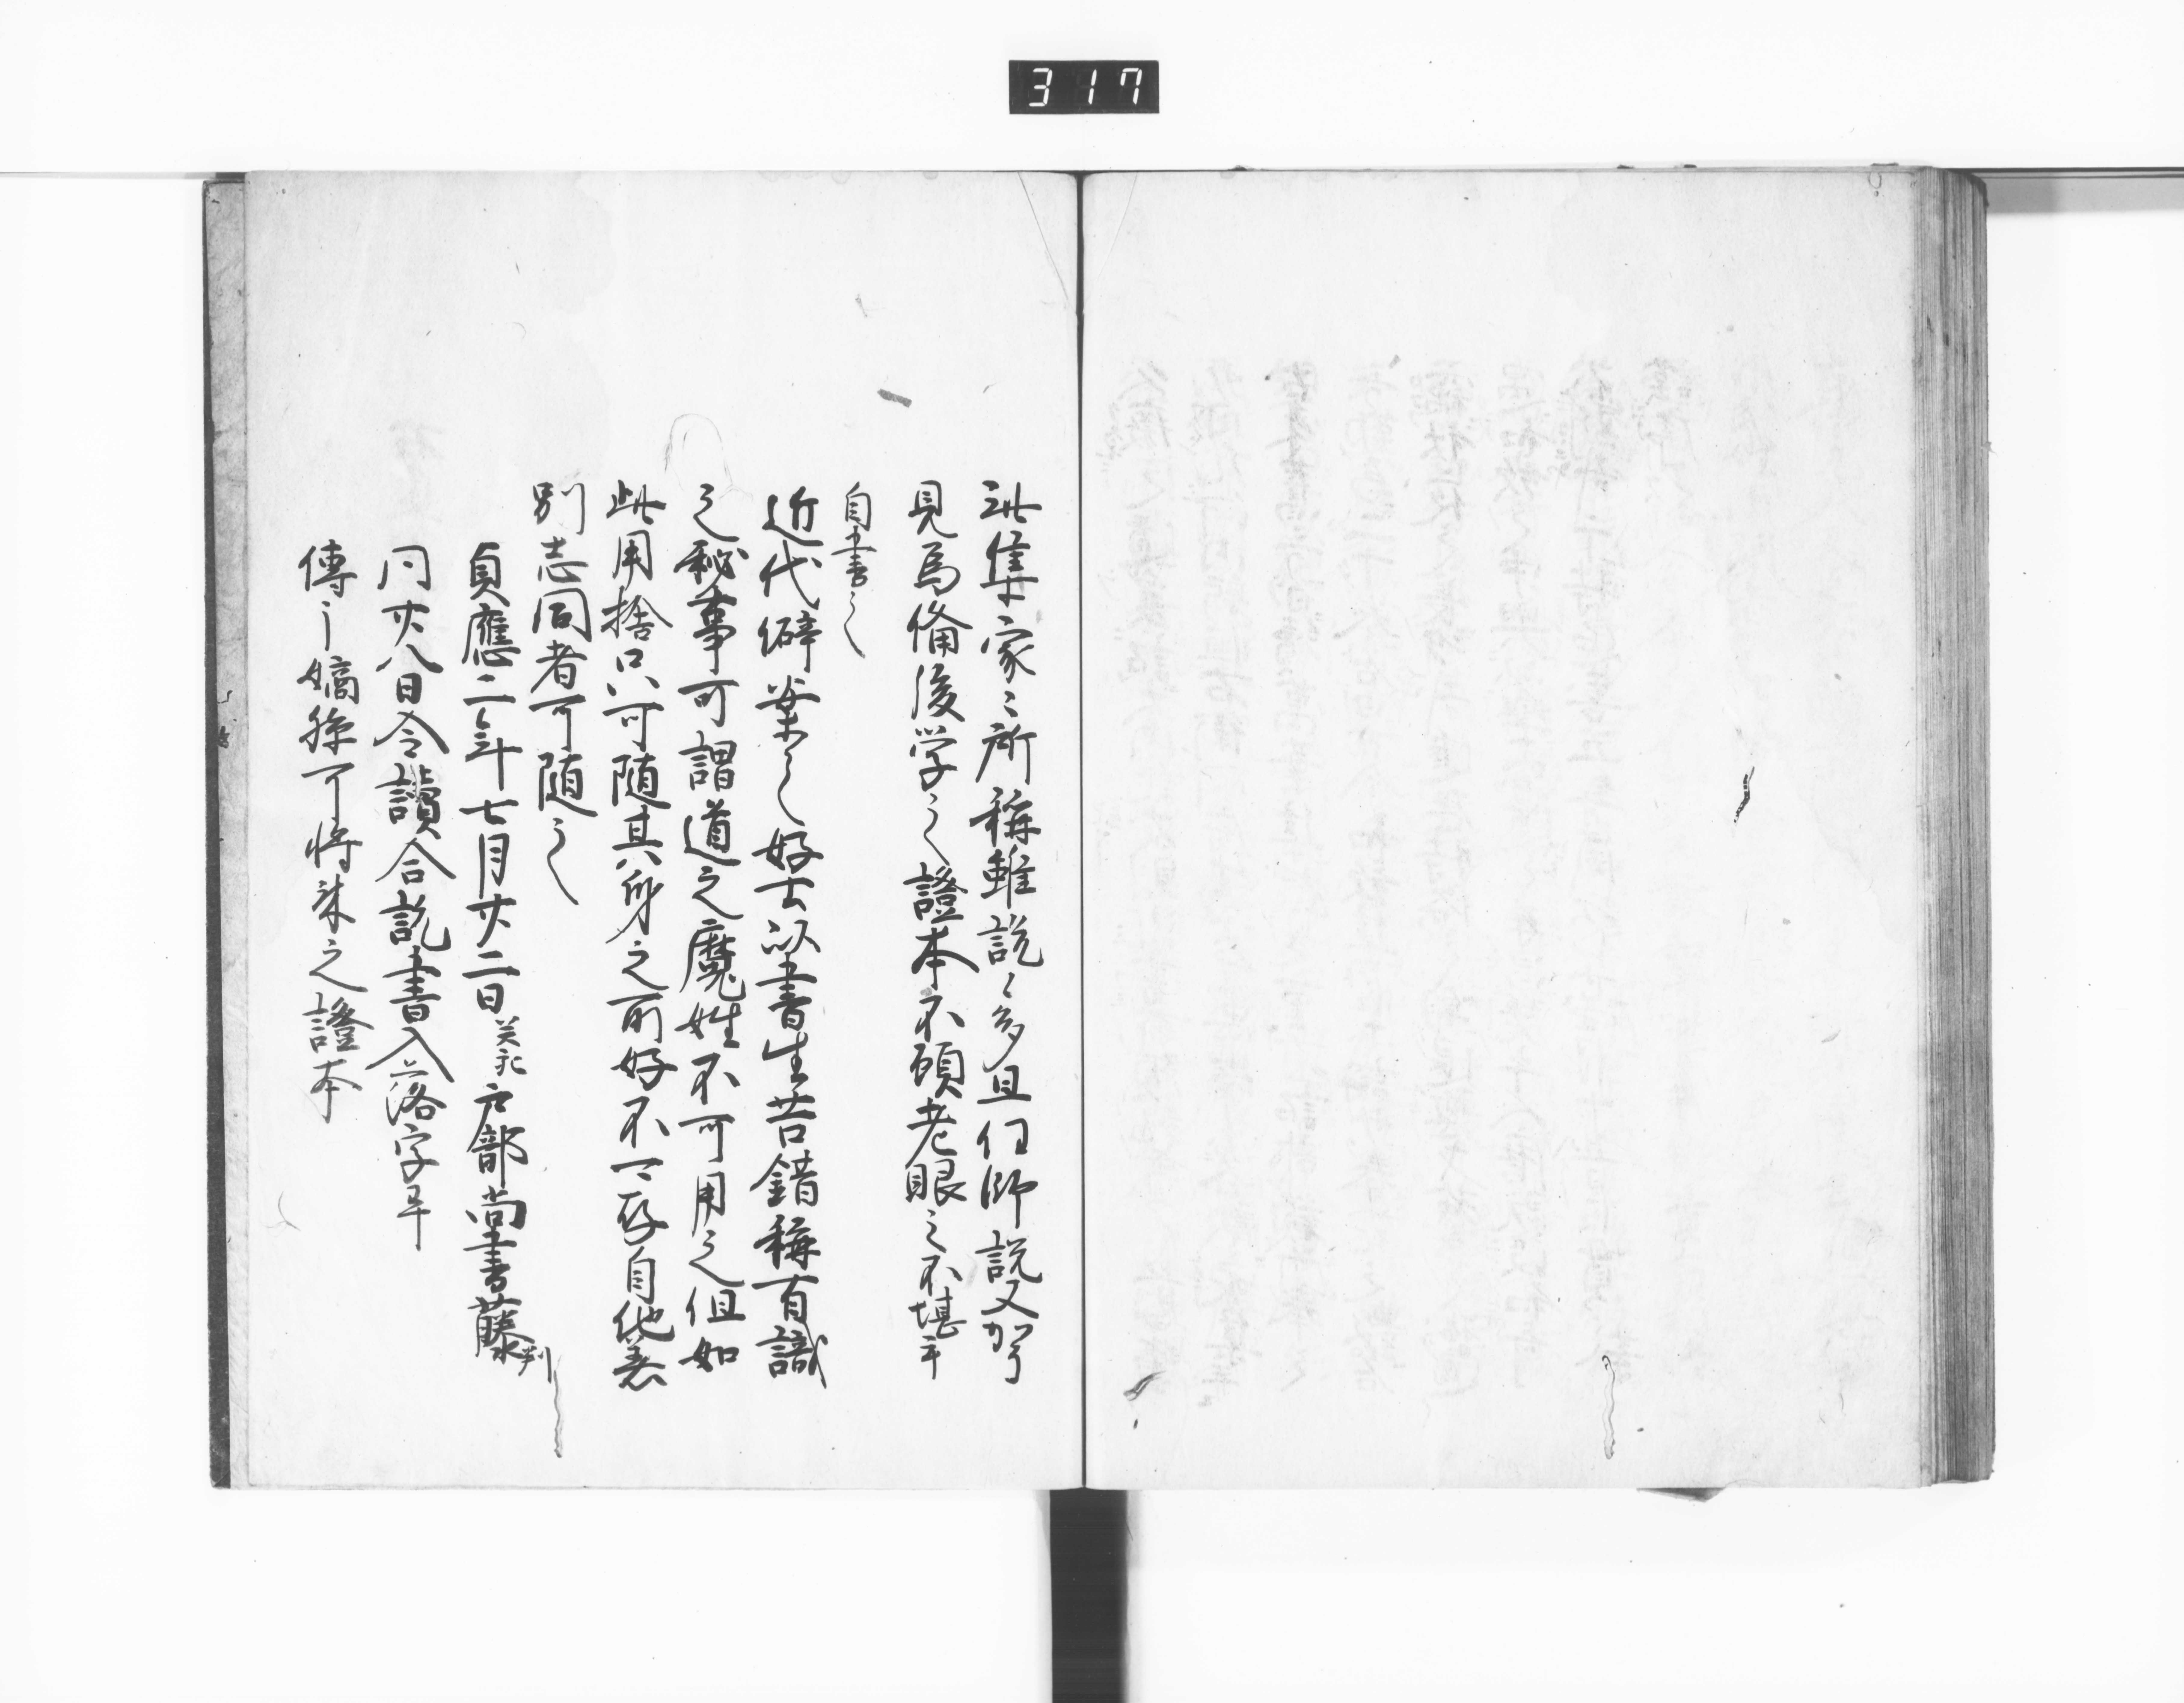 317
此集家〻所稱雖説〻多且任師説又加了
見為備後学之證本不顧老眼之不堪手
自書之
近代僻案之好士以書生之錯稱有識
之秘事可謂道之魔姓不可用之但如
此用捨只可随其身之所好不可存自他差
別志同者可随之
貞應二年七月廿二日癸亥戸部尚書藤判
同廿八日令讀合訖書入落字畢
傳之嫡孫可為将来之證本